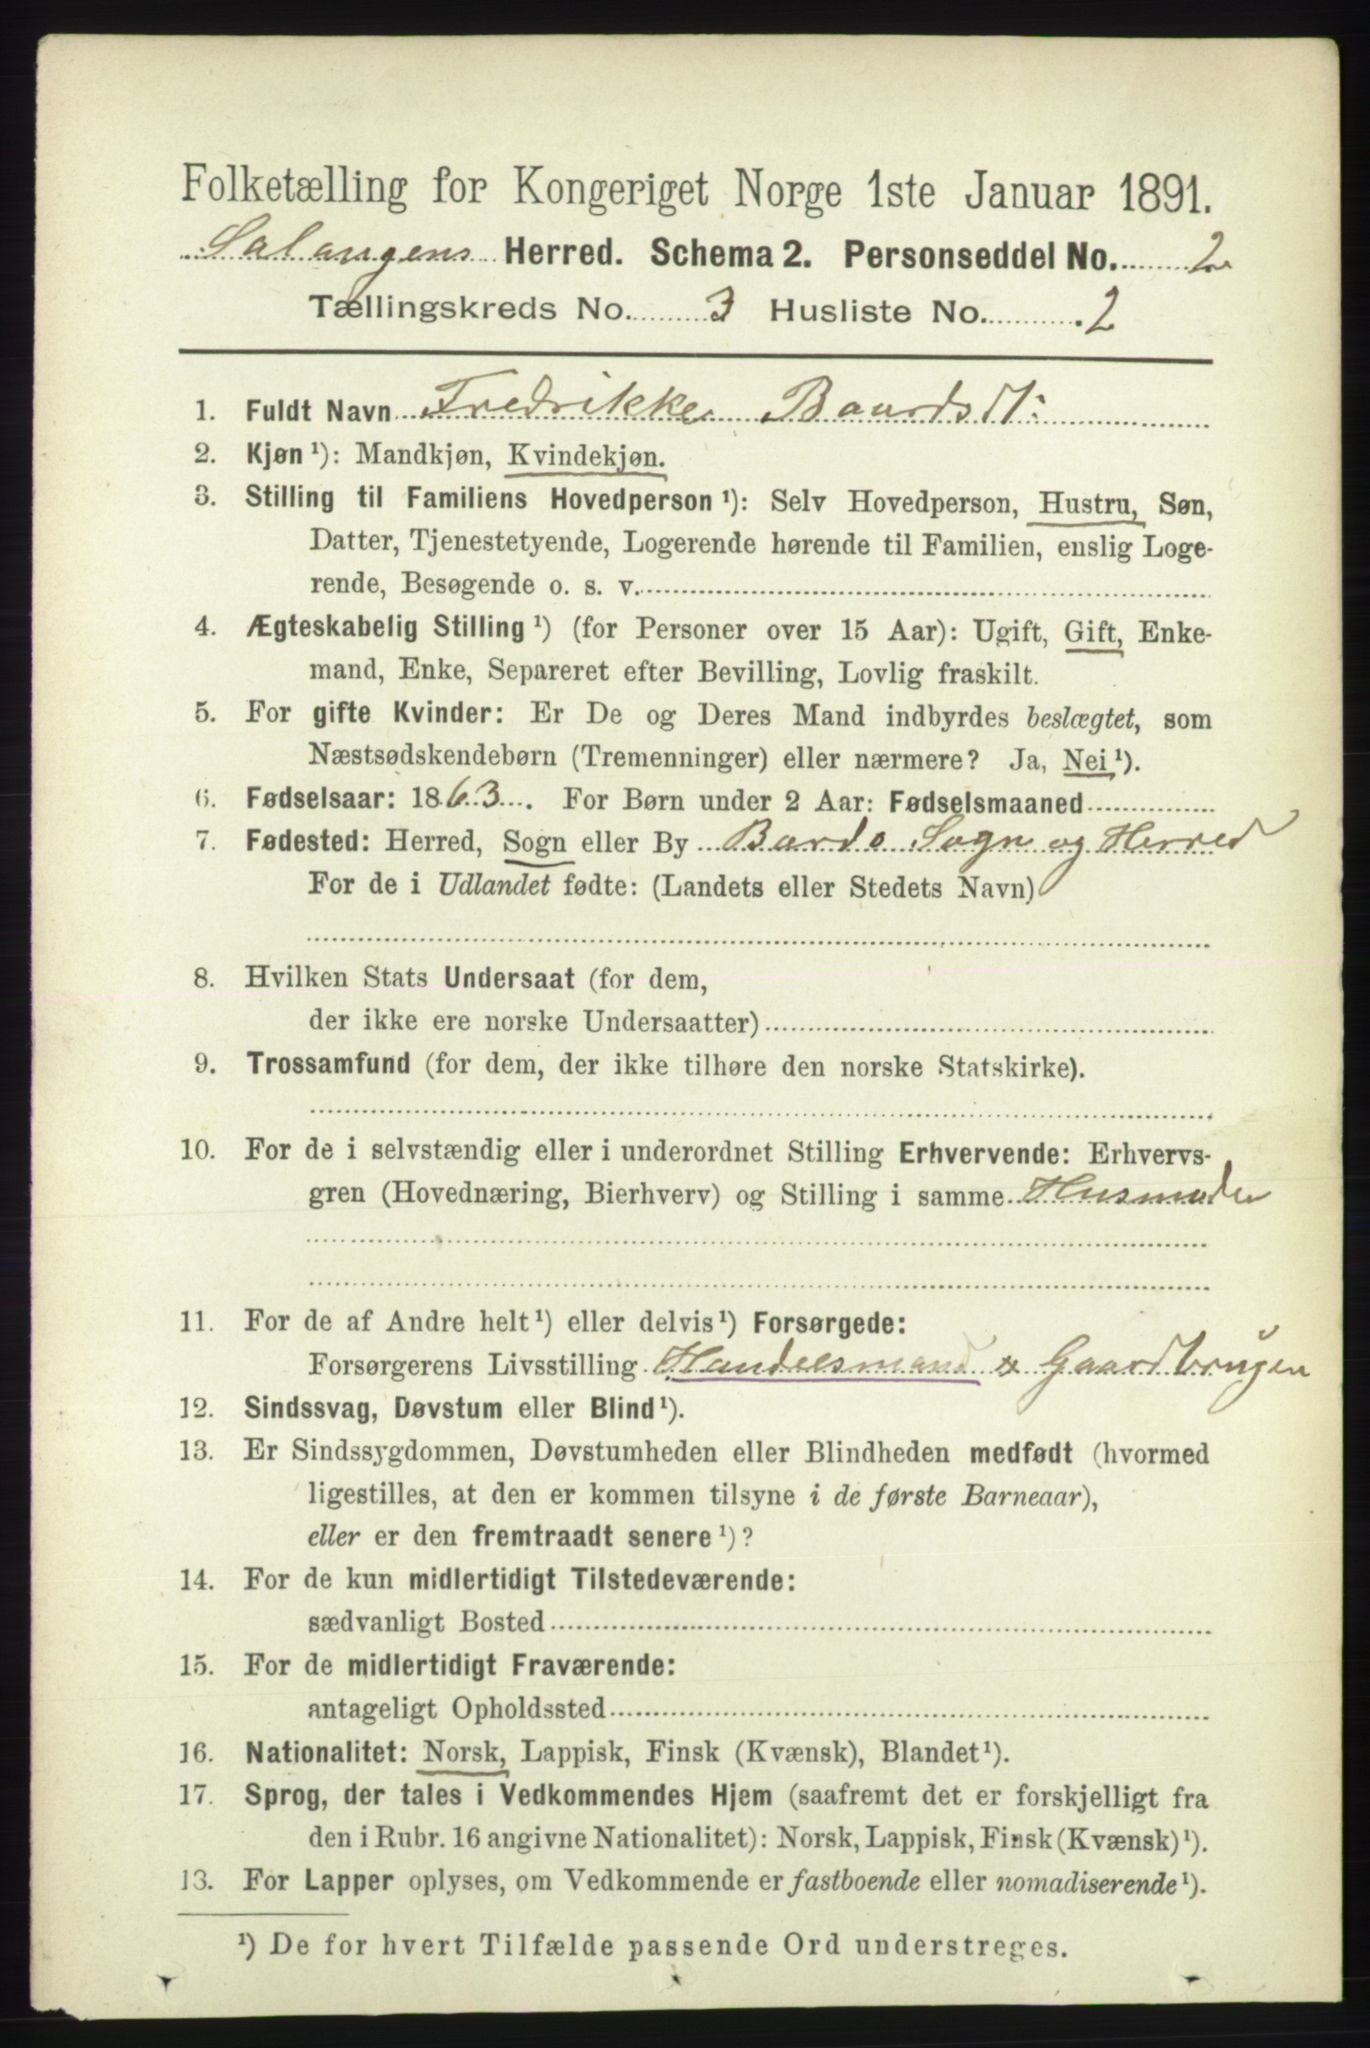 Folketælling for Kongeriget Norge 1ste Januar 1891.
Salangens Herred. Schema 2. Personseddel No. 2
Tællingskreds No. 3 Husliste No. 2
1. Fuldt Navn Fredrikke Baardsdt:
2. Kjøn ¹): Mandkjøn, Kvindekjøn.
3. Stilling til Familiens Hovedperson ¹): Selv Hovedperson, Hustru, Søn,
Datter, Tjenestetyende, Logerende hørende til Familien, enslig Loge-
rende, Besøgende o. s. v.
4. Ægteskabelig Stilling ¹) (for Personer over 15 Aar): Ugift, Gift, Enke-
mand, Enke, Separeret efter Bevilling, Lovlig fraskilt.
5. For gifte Kvinder: Er De og Deres Mand indbyrdes beslægtet, som
Næstsødskendebørn (Tremenninger) eller nærmere? Ja, Nei ¹).
6. Fødselsaar: 1863. For Børn under 2 Aar: Fødselsmaaned
7. Fødested: Herred, Sogn eller By Bardo Sogn og Herred
For de i Udlandet fødte: (Landets eller Stedets Navn)
8. Hvilken Stats Undersaat (for dem,
der ikke ere norske Undersaatter)
9. Trossamfund (for dem, der ikke tilhøre den norske Statskirke).
10. For de i selvstændig eller i underordnet Stilling Erhvervende: Erhvervs-
gren (Hovednæring, Bierhverv) og Stilling i samme Husmoder
11. For de af Andre helt ¹) eller delvis ¹) Forsørgede:
Forsørgerens Livsstilling Handelsmand & Gaardbruger
12. Sindssvag, Døvstum eller Blind ¹).
13. Er Sindssygdommen, Døvstumheden eller Blindheden medfødt (hvormed
ligestilles, at den er kommen tilsyne i de første Barneaar),
eller er den fremtraadt senere ¹)?
14. For de kun midlertidigt Tilstedeværende:
sædvanligt Bosted
15. For de midlertidigt Fraværende:
antageligt Opholdssted
16. Nationalitet: Norsk, Lappisk, Finsk (Kvænsk), Blandet ¹).
17. Sprog, der tales i Vedkommendes Hjem (saafremt det er forskjelligt fra
den i Rubr. 16 angivne Nationalitet): Norsk, Lappisk, Finsk (Kvænsk) ¹).
13. For Lapper oplyses, om Vedkommende er fastboende eller nomadiserende ¹).
¹) De for hvert Tilfælde passende Ord understreges.